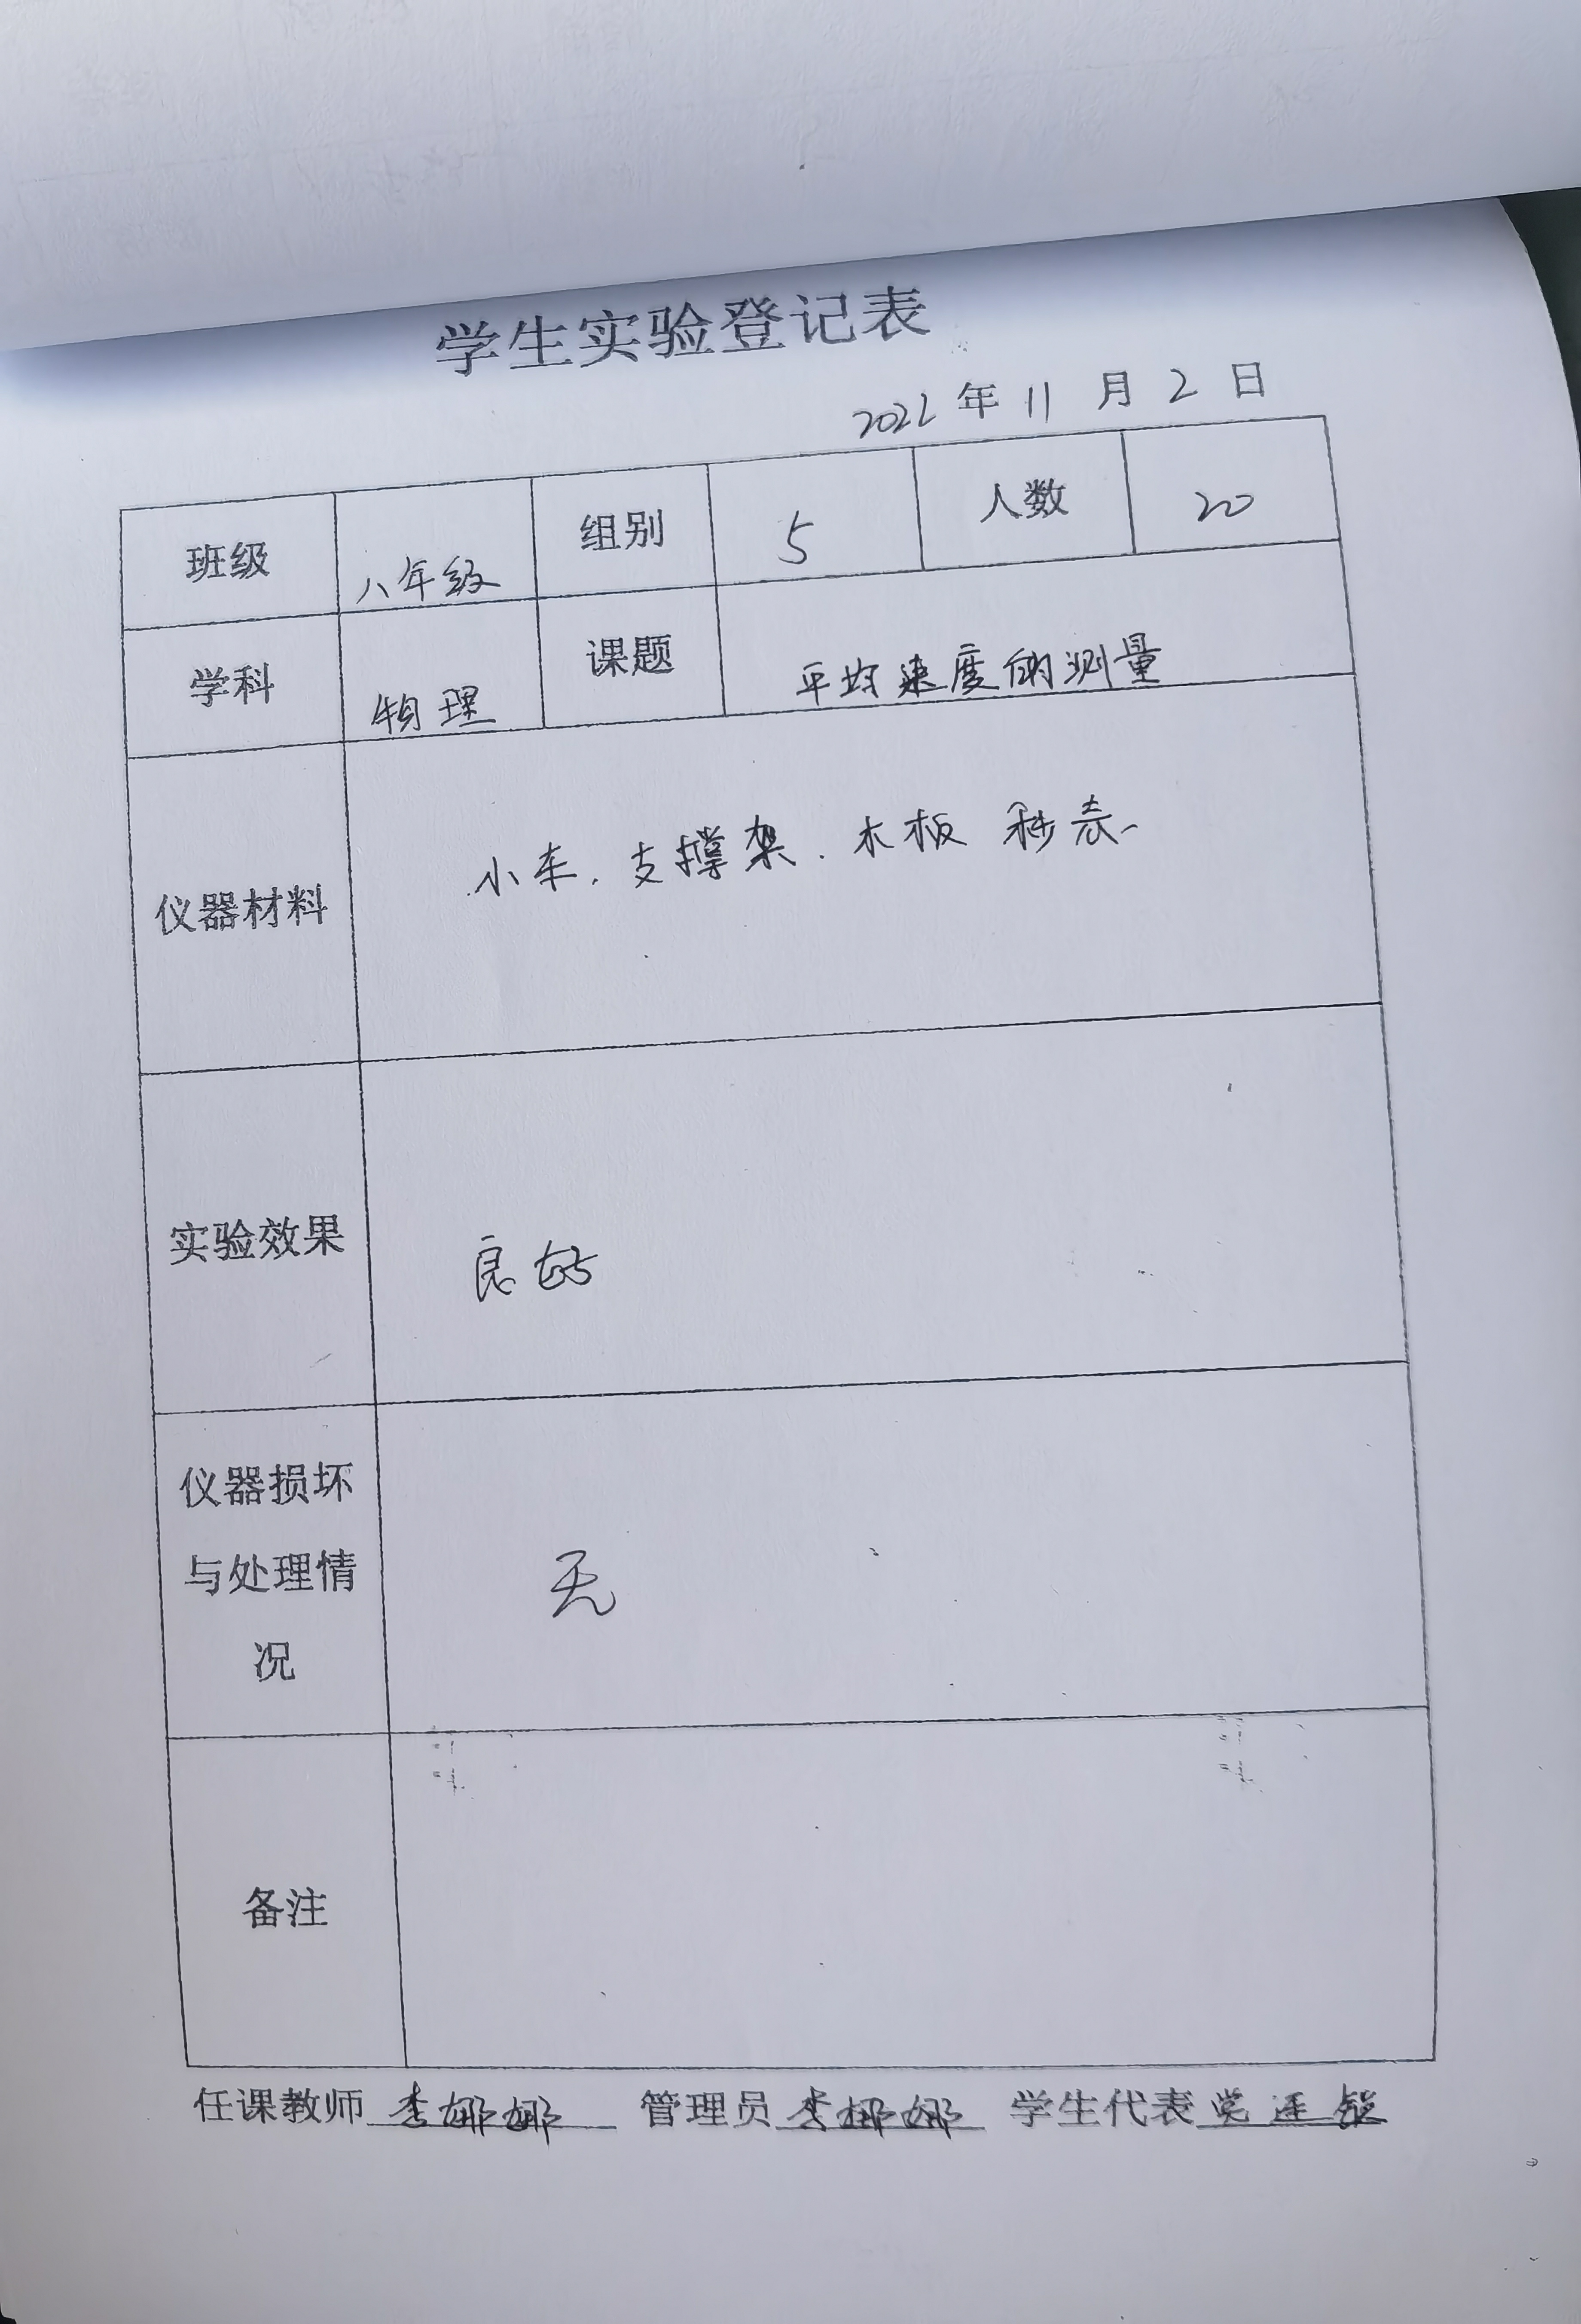 学生实验登记表
2022 年 11 月 2 日
班级 八年级 组别 5 人数 20
学科 物理 课题 平均速度的测量
仪器材料 小车、支撑架、木板 秒表
实验效果 良好
仪器损坏
与处理情
况
无
备注
任课教师 李娜娜 管理员 李娜娜 学生代表